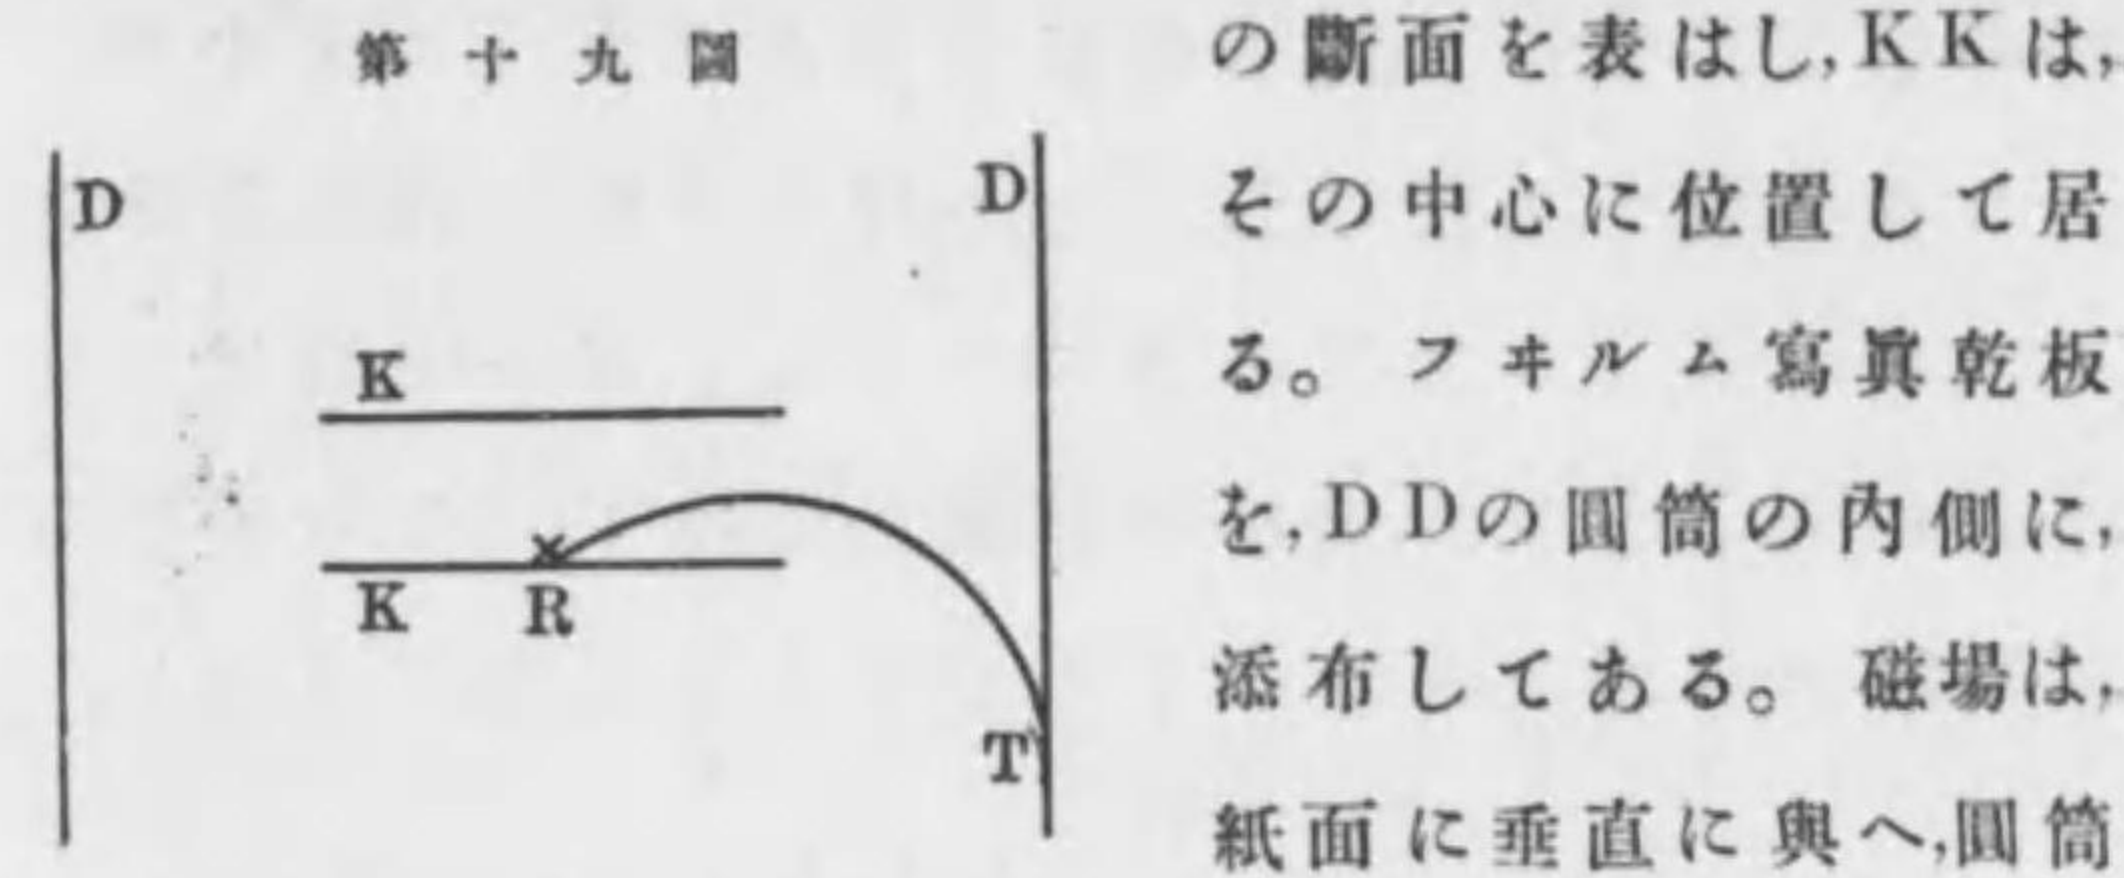 第十九圖
D
D
K
K
R
T
の斷面を表はし,KKは,
その中心に位置して居
る。フヰルム寫眞乾板
を,DDの圓筒の內側に,
添布してある。磁場は,
紙面に垂直に與へ,圓筒